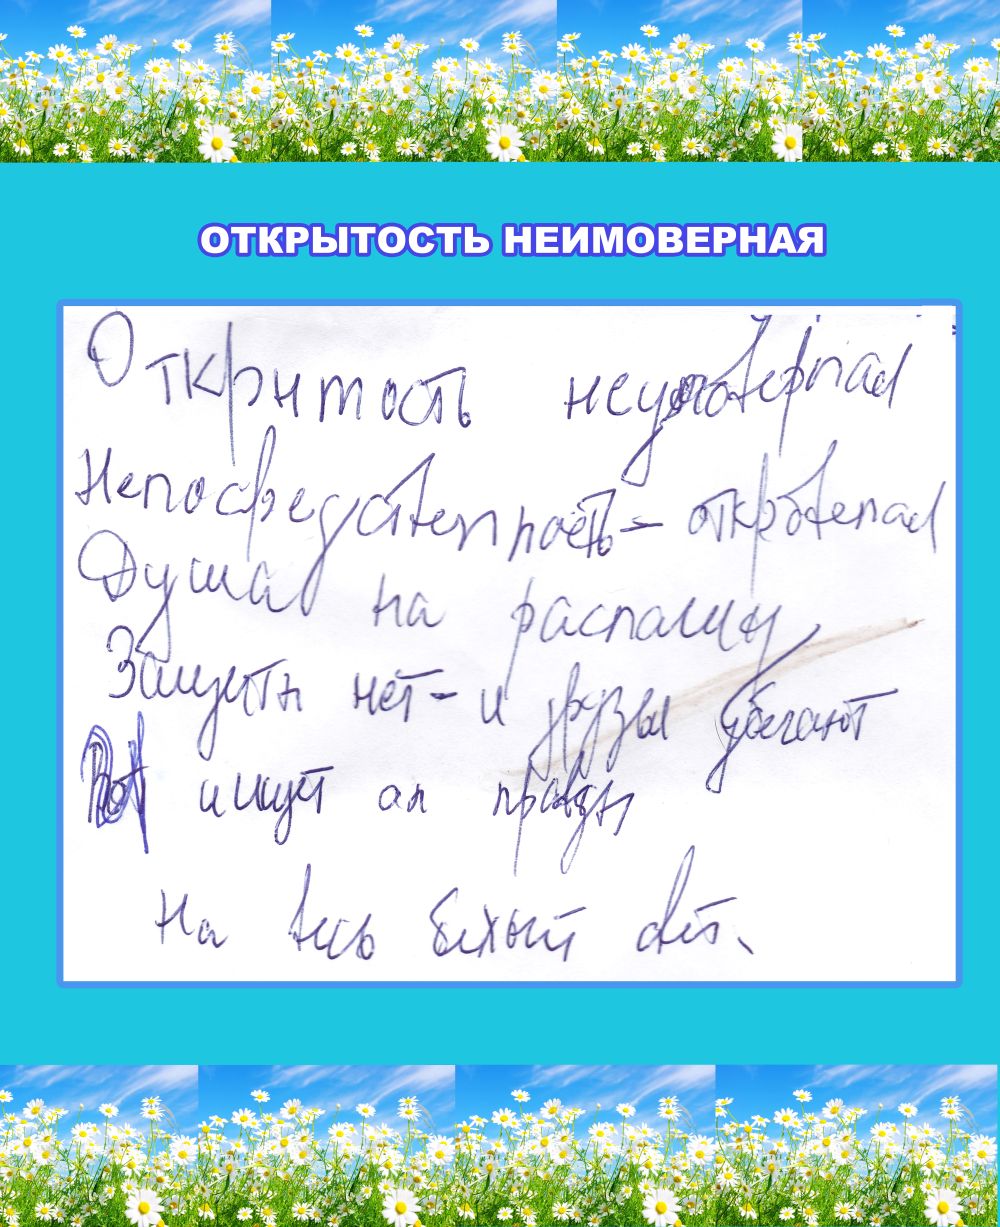 ОТКРЫТОСТЬ НЕИМОВЕРНАЯ
Открытость неимоверная
Непосредственность – откровенная
Душа на распашку
Защиты нет – и друзья убегают
ищут правды
На весь белый свет.